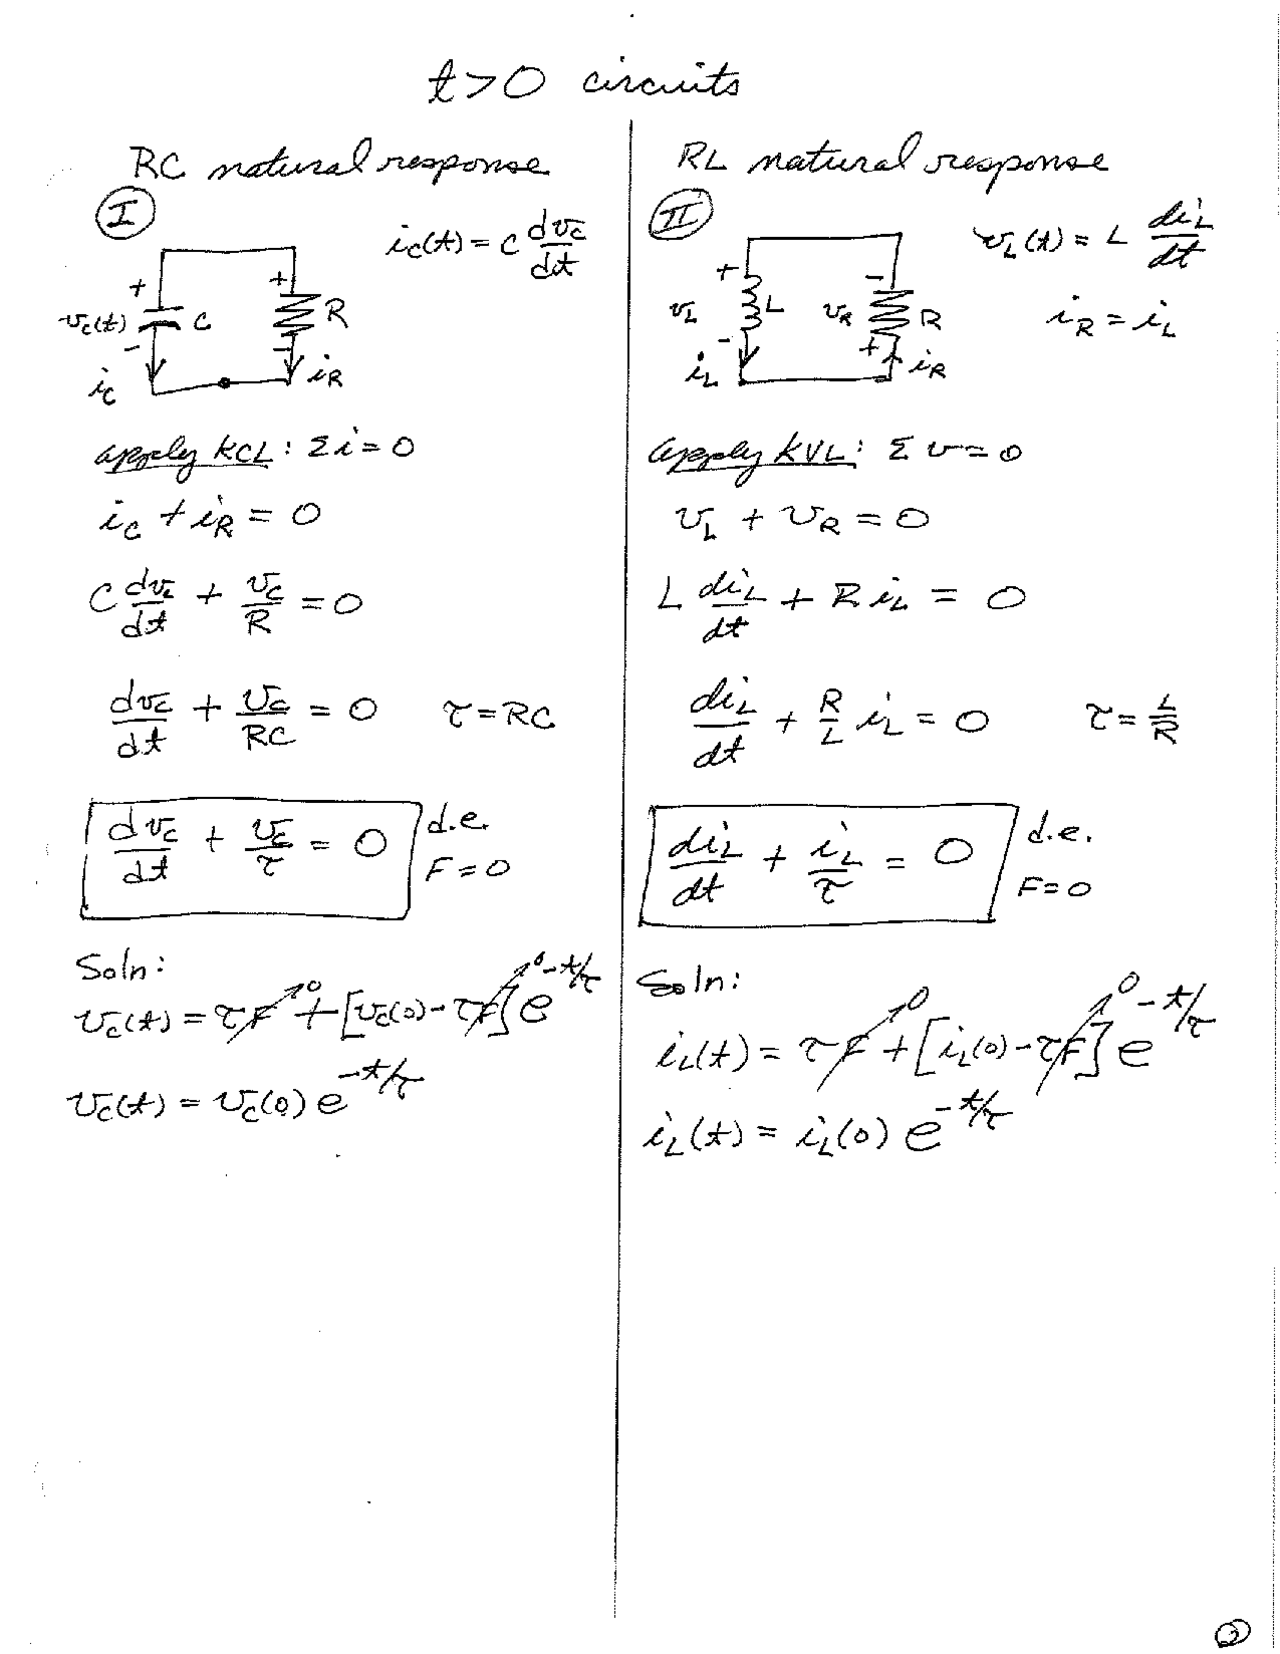 t>0 circuits
RC natural response
I
i_C(t) = C dv_C/dt
+ +
v_C(t) C R
- -
i_C i_R
apply KCL: Σi = 0
i_C + i_R = 0
C dv_C/dt + v_C/R = 0
dv_C/dt + v_C/RC = 0 τ = RC
dv_C/dt + v_C/τ = 0 d.e.
F = 0
Soln:
v_C(t) = τF→0 + [v_C(0) - τF→0] e^{-t/τ}
v_C(t) = v_C(0) e^{-t/τ}
RL natural response
II
v_L(t) = L di_L/dt
i_R = i_L
+ -
v_L L v_R R
- +
i_L i_R
apply KVL: Σ v = 0
v_L + v_R = 0
L di_L/dt + R i_L = 0
di_L/dt + R/L i_L = 0 τ = L/R
di_L/dt + i_L/τ = 0 d.e.
F = 0
Soln:
i_L(t) = τF→0 + [i_L(0) - τF→0] e^{-t/τ}
i_L(t) = i_L(0) e^{-t/τ}